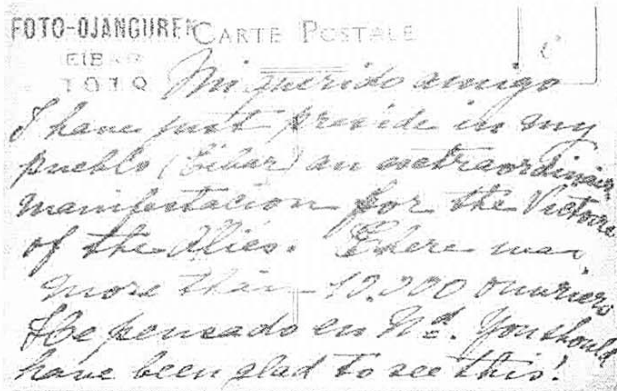 FOTO-OJANGUREN
CARTE POSTALE
EIBAR
1918
Mi querido amigo
I have just preside in my
pueblo (Eibar) an extraordinair
manifestacion for the Victoire
of the Aliés. There was
more than 10.000 ouvriers
He pensado en Vd. You should
have been glad to see this!